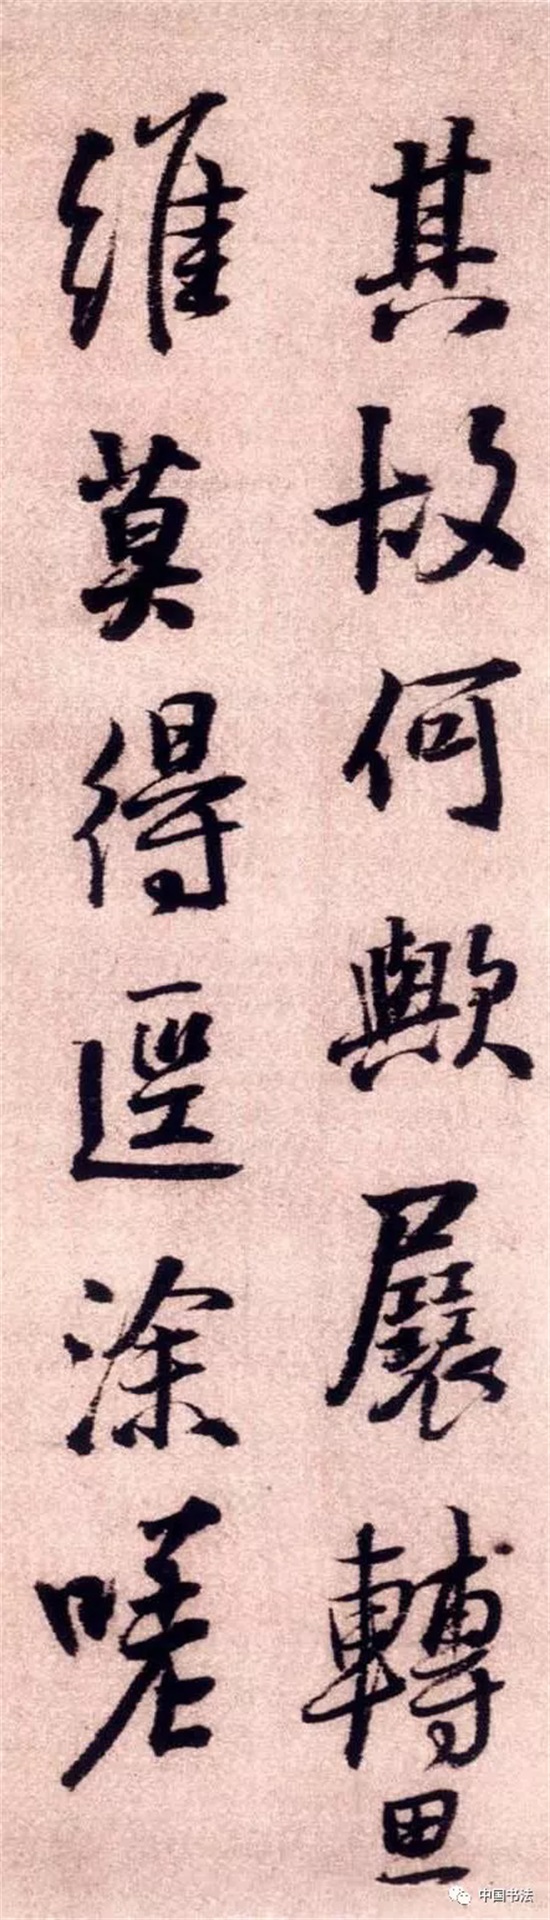 其故何歟展轉思
維莫得逕涂嗟
中国书法